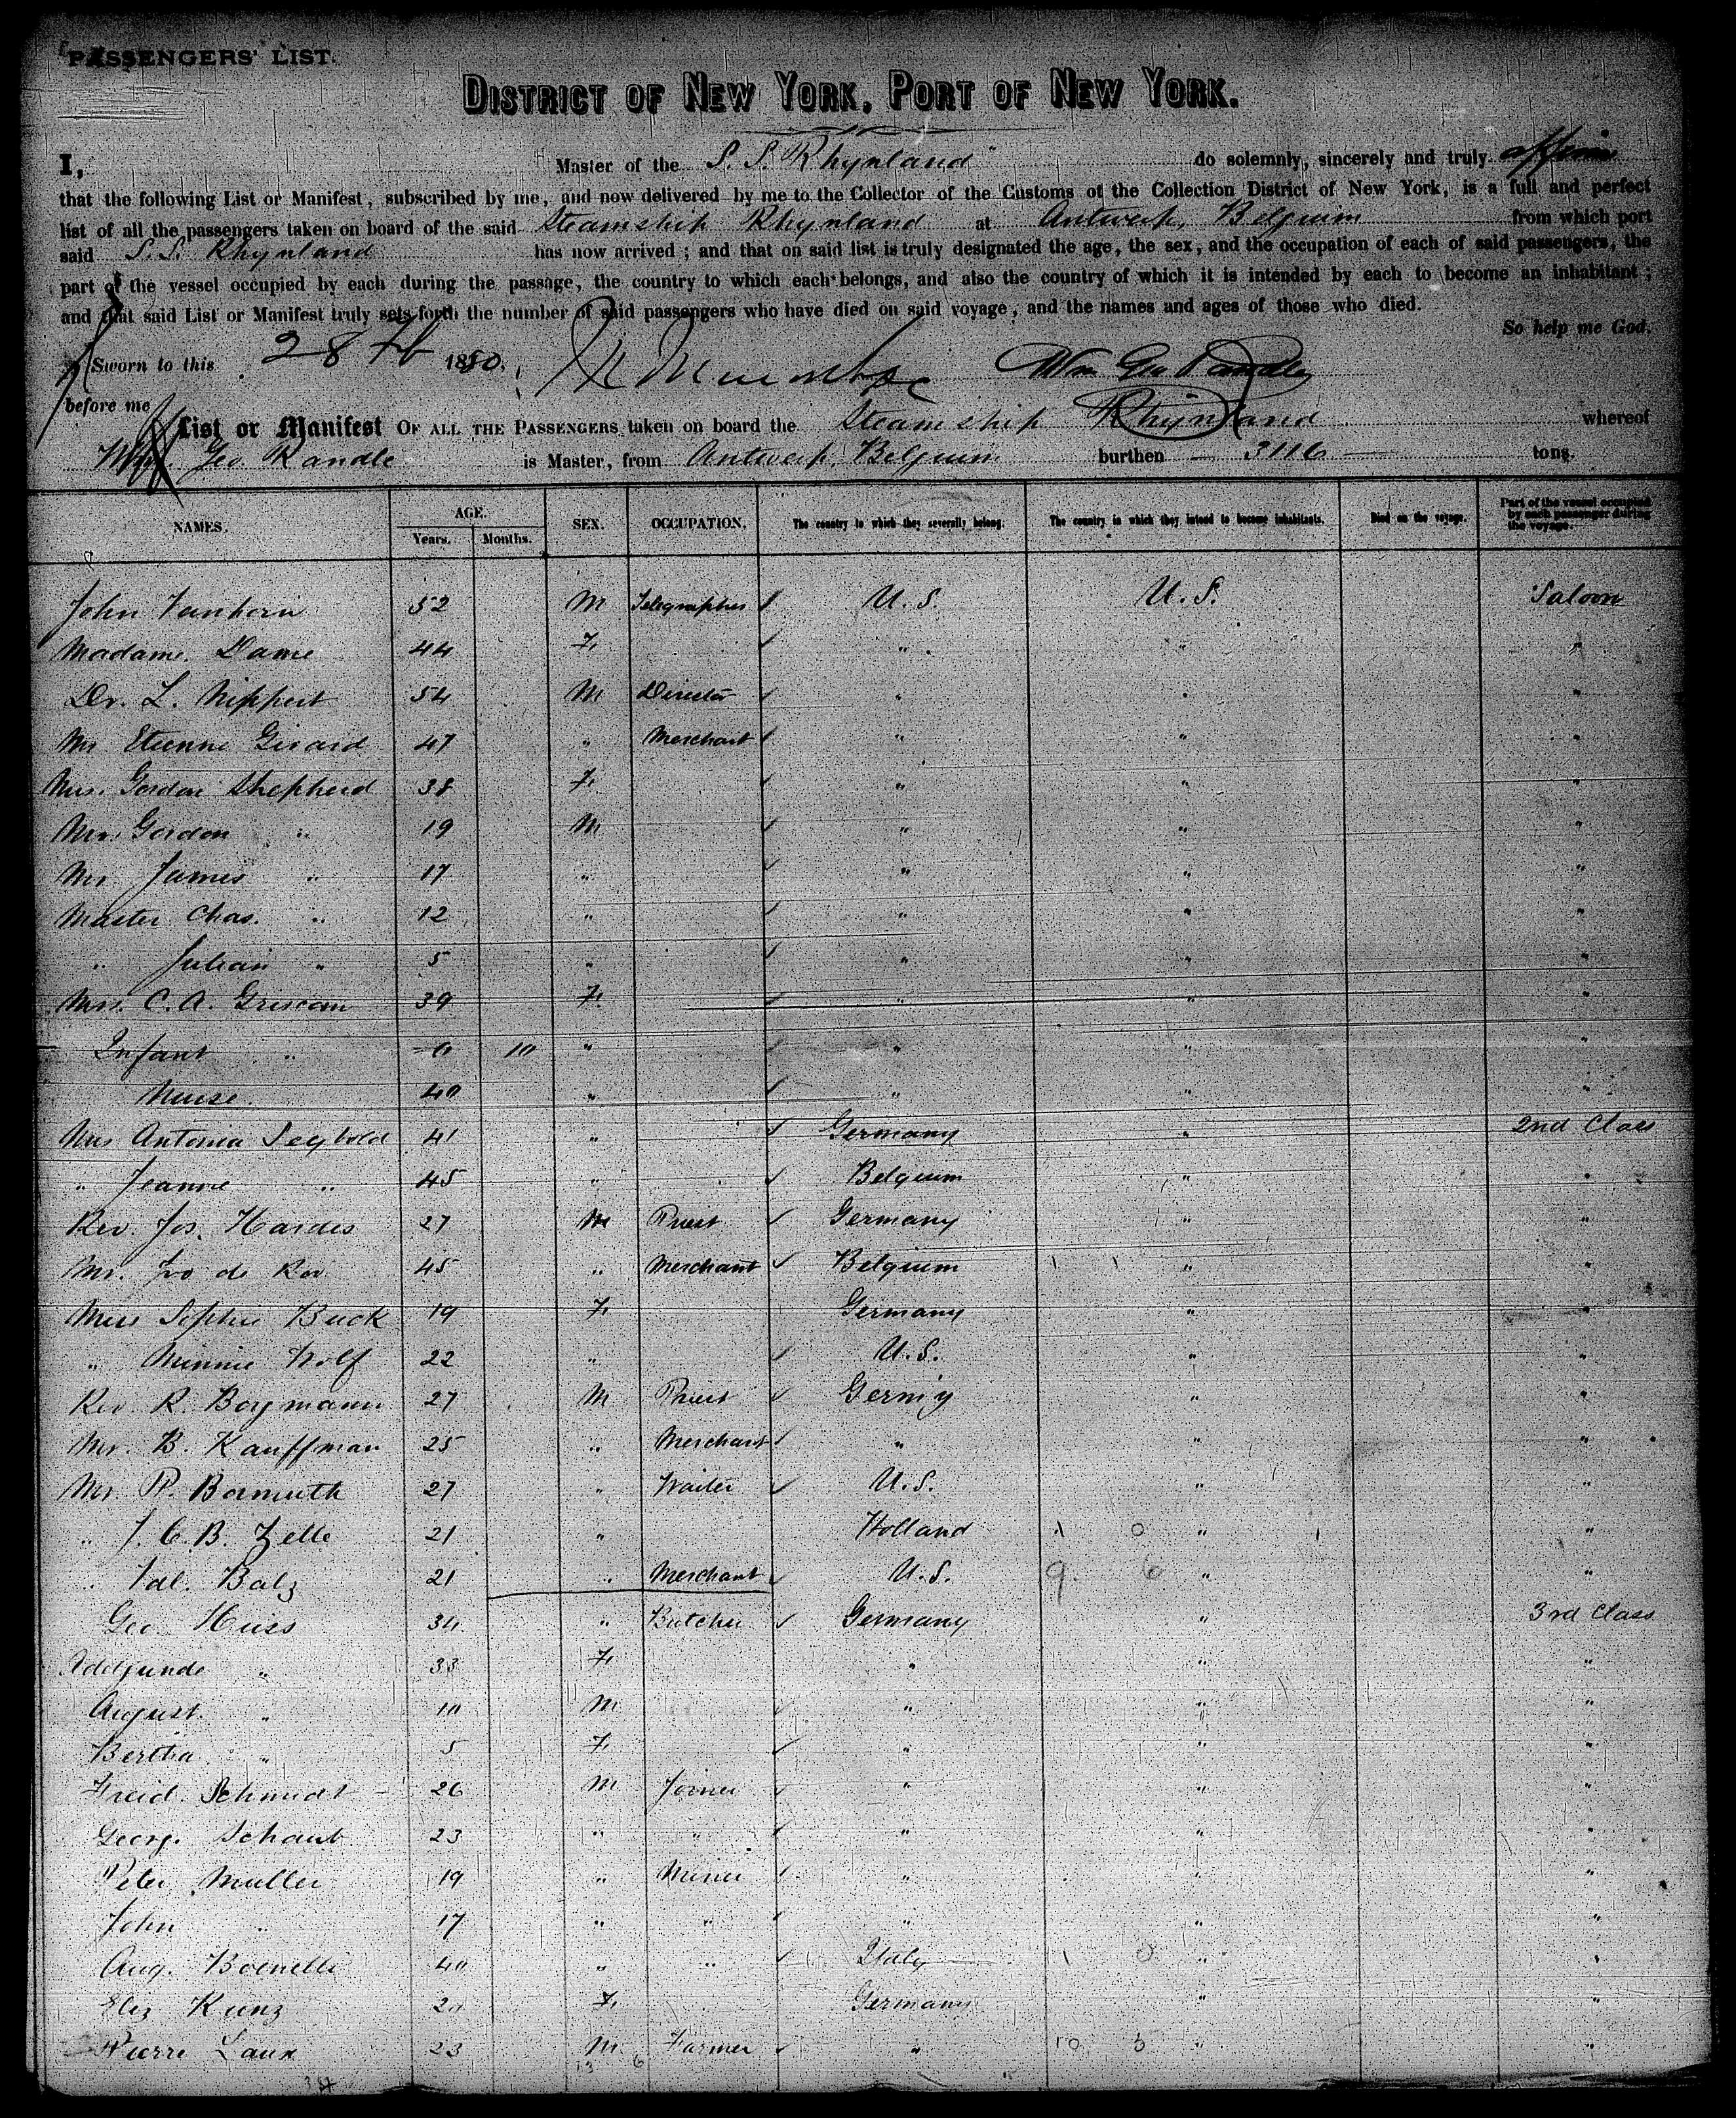 PASSENGERS' LIST.
DISTRICT OF NEW YORK, PORT OF NEW YORK.
I, Master of the S. S. "Rhynland" do solemnly, sincerely and truly affirm
that the following List or Manifest, subscribed by me, and now delivered by me to the Collector of the Customs of the Collection District of New York, is a full and perfect
list of all the passengers taken on board of the said Steamship Rhynland at Antwerp, Belgium from which port
said S.S. Rhynland has now arrived; and that on said list is truly designated the age, the sex, and the occupation of each of said passengers, the
part of the vessel occupied by each during the passage, the country to which each belongs, and also the country of which it is intended by each to become an inhabitant;
and that said List or Manifest truly sets forth the number of said passengers who have died on said voyage, and the names and ages of those who died.
So help me God.
Sworn to this 28 1880.
before me
List or Manifest OF ALL THE PASSENGERS taken on board the Steamship Rhynland whereof
Wm. Geo. Randle is Master, from Antwerp, Belgium burthen — 3116 — tons.
NAMES. AGE. SEX. OCCUPATION. The country to which they severally belong. The country in which they intend to become inhabitants. Died on the voyage. Part of the vessel occupied by each passenger during the voyage.
Years. Months.
John Vanhorn 52 M Telegrapher U.S. U.S. Saloon
Madame Dame 44 F. " " "
Dr. L. Nippert 54 M Director " " "
Mr Etienne Girard 47 " Merchant " " "
Mrs. Gordon Shepherd 38 F. " " "
Mr. Gordon " 19 M " " "
Mr. James " 17 " " " "
Master Chas. " 12 " " " "
" Julian " 5 " " " "
Mrs. C. A. Griscom 39 F. " " "
Infant " 0 10 " " " "
Nurse 40 " " " "
Mrs Antonia Seybold 41 " Germany " 2nd Class
" Jeanne " 45 " Belgium " "
Rev. Jos. Hardes 27 M Priest Germany " "
Mr. Ivo de 45 " Merchant Belgium " "
Miss Sophie Buck 19 F. Germany " "
" Minnie Wolf 22 " U.S. " "
Rev. R. Borgmann 27 M Priest Germ'y " "
Mr. B. Kauffman 25 " Merchant " " "
Mr. P. Bormuth 27 " Waiter U.S. " "
" J. C. B. Zelle 21 " Holland 1 0 " "
" Val. Balz 21 " Merchant U.S. 9 6 " "
Geo. Huss 34 " Butcher Germany " 3rd Class
Adelgunde " 33 F. " " "
August " 10 M " " "
Bertha " 5 F. " " "
Fried. Schmidt 26 M Joiner " " "
Georg. Schaub 23 " " " " "
Peter Muller 19 " Miner " " "
John " 17 " " " " "
Aug. 40 " " Italy 1 0 " "
Eliz Kunz 20 F. Germany " "
Pierre Laux 23 M Farmer " 10 3 " "
13 6
34